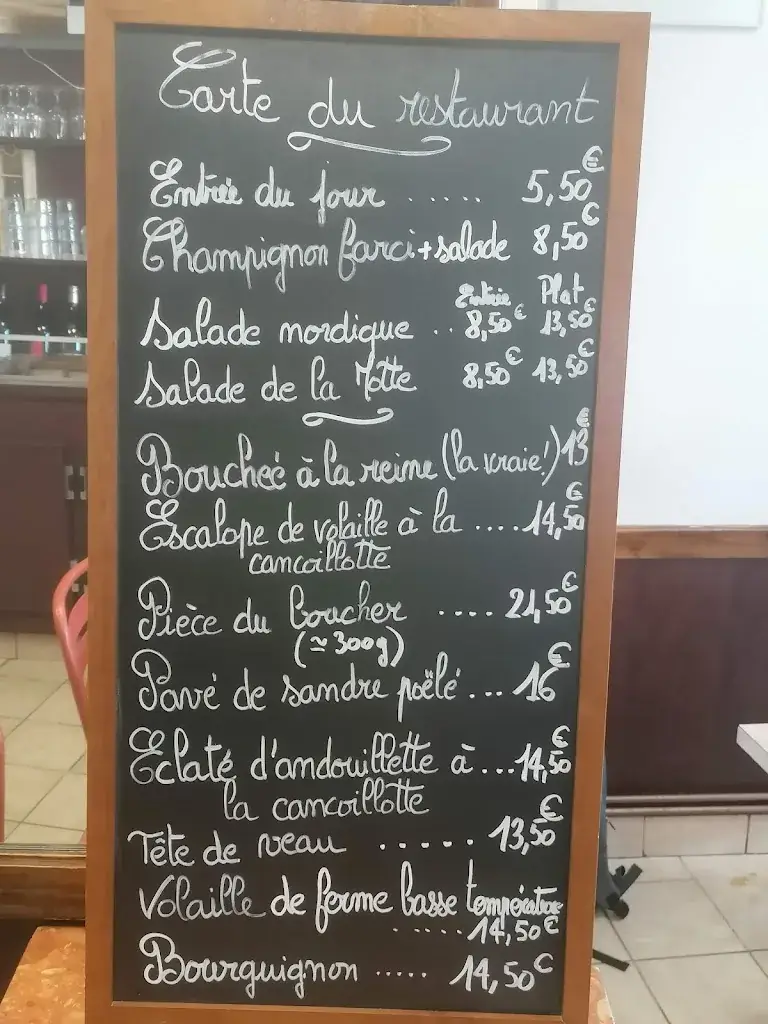 Carte du restaurant
Entrée du jour ...... 5,50€
Champignon farci + salade 8,50€
Entrée Plat
Salade nordique .. 8,50€ 13,50€
Salade de la Motte 8,50€ 13,50€
Bouchée à la reine (la vraie!) 13€
Escalope de volaille à la .... 14,50€
cancoillotte
Pièce du boucher .... 21,50€
(≃ 300g)
Pavé de sandre poêlé ... 16€
Eclaté d'andouillette à ... 14,50€
la cancoillotte
Tête de veau ..... 13,50€
Volaille de ferme basse température
..... 14,50€
Bourguignon ..... 14,50€